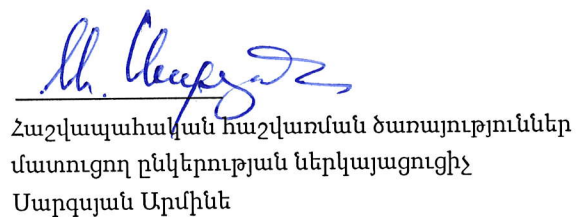 Հաշվապահական հաշվառման ծառայություններ
մատուցող ընկերության ներկայացուցիչ
Սարգսյան Արմինե